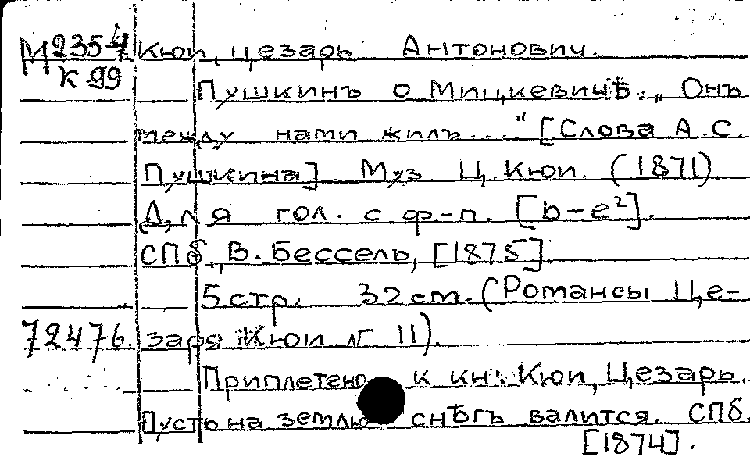 М 235-4 Кюи, Цезарь Антонович.
К 99
Пушкинъ о Мицкевичѣ. „Онъ
между нами жилъ..." [Слова А.С.
Пушкина] Муз Ц. Кюи. (1871)
Для гол. с ф-п. [b-e²].
СПб, В. Бессель, [1875]
5 стр. 32 cm. (Романсы Це-
72476. заря Кюи № 11).
Приплетено к кн: Кюи, Цезарь.
Пусто на землю снѣгъ валится. СПб.
[1874].